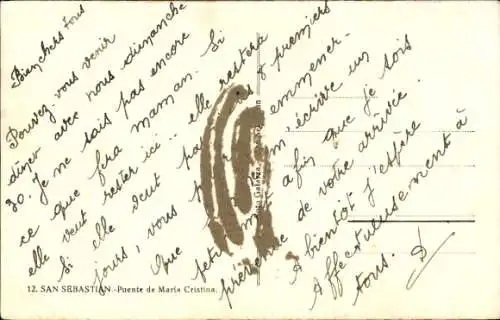 Bien chers tous
Pouvez-vous venir
dîner avec nous dimanche
30. Je ne sais pas encore
ce que fera maman. Si
elle veut rester ici.. elle restera
Si elle veut par 8 premiers
jours, vous emmener.
Que petit m'écrive un
afin que je sois
prévenue de votre arrivée.
A bientôt j'espère
Affectueusement à
tous. D
12. SAN SEBASTIAN.-Puente de María Cristina.